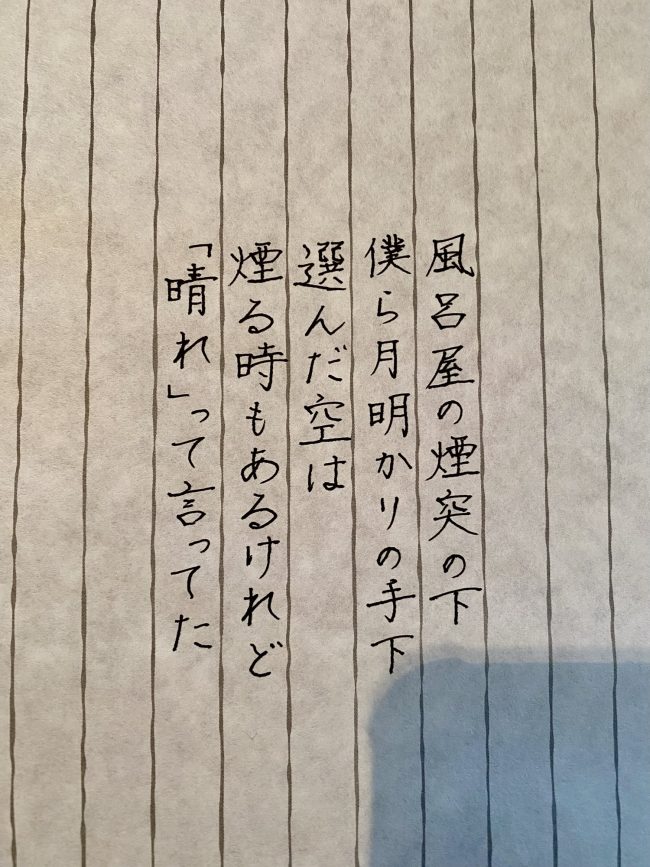 風呂屋の煙突の下
僕ら月明かりの手下
選んだ空は
煙る時もあるけれど
「晴れ」って言ってた